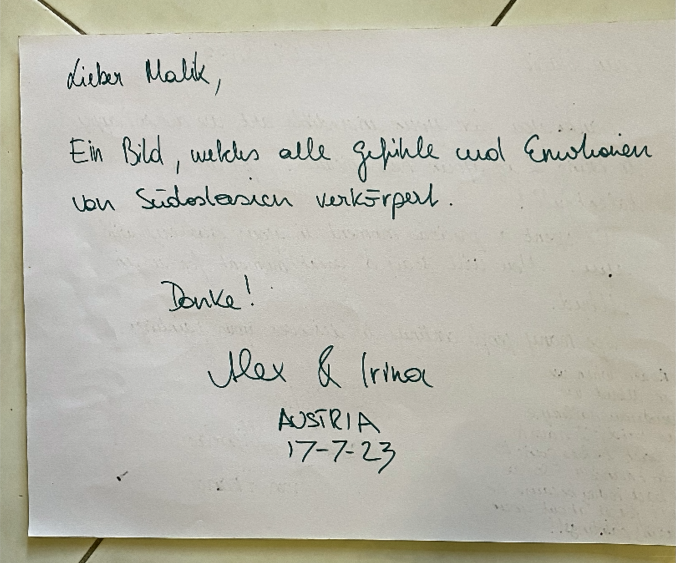 Lieber Malik,
Ein Bild, welches alle gefühle und Emotionen
von Südostasien verkörpert.
Danke!
Alex & Irina
AUSTRIA
17-7-23